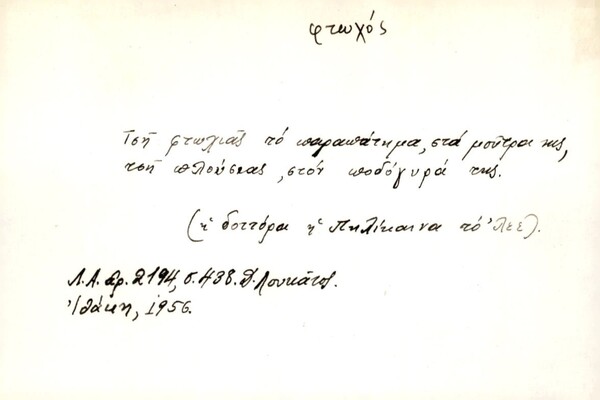 φτωχός
Τσῆ φτωχιᾶς τό παραπάτημα, στά μοῦτρα της,
τσῆ πλούσιας, στόν ποδόγυρά της.
(ἡ δοττόρα ἡ Πηλίκαινα τό 'λεε).
Λ.Α. ἀρ. 2194, σ. 438. Δ. Λουκάτος.
Ἰθάκη, 1956.